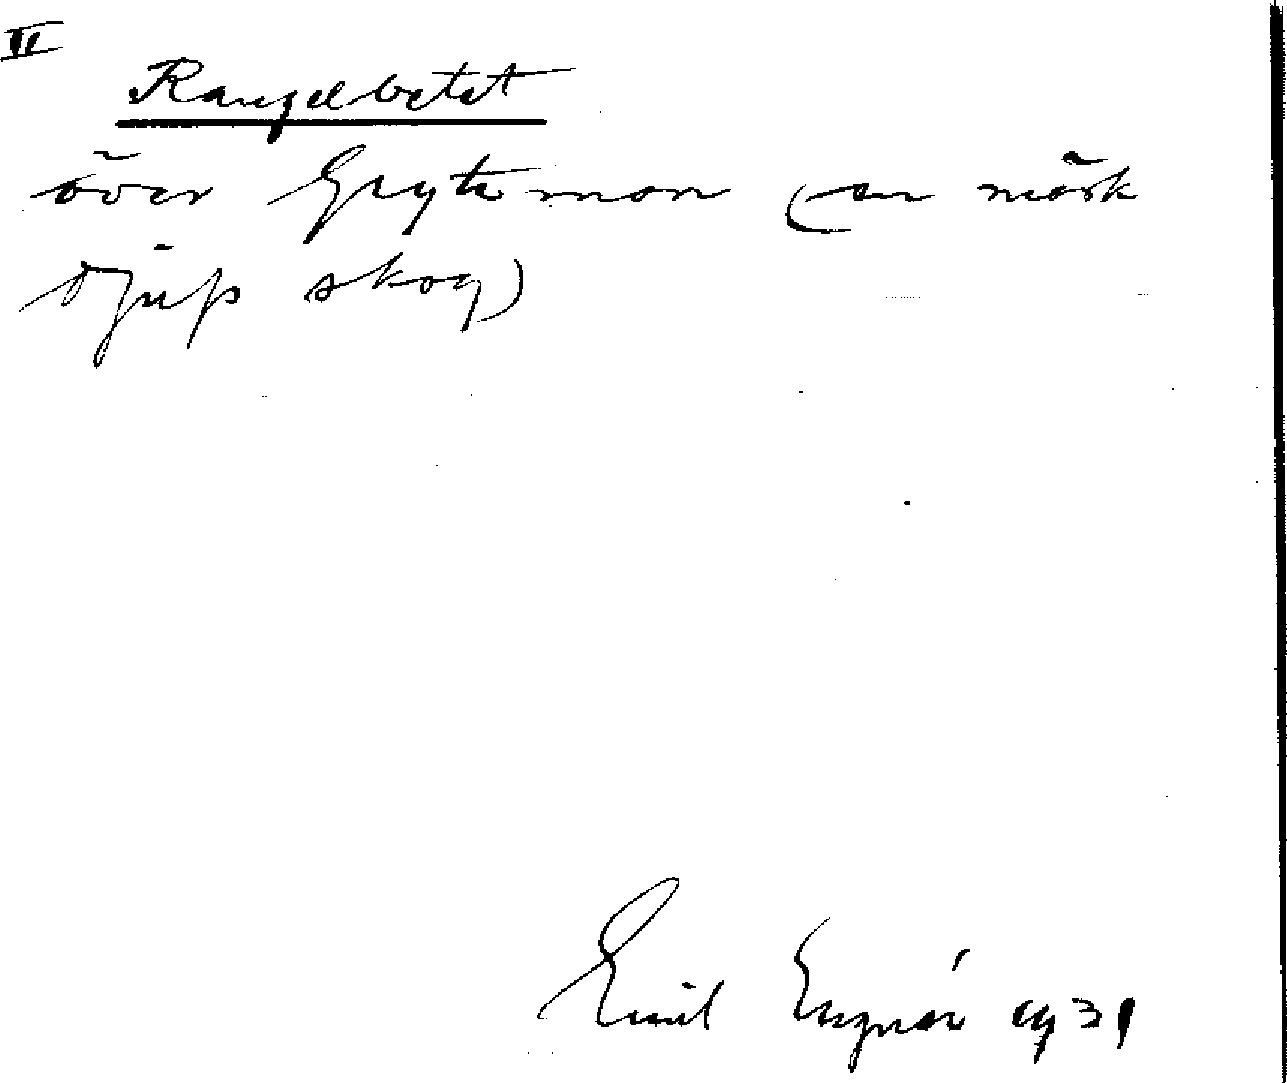 II
Rangelbetet
över Grytmon (en mörk
djup skog)
Emil Engnér 1931